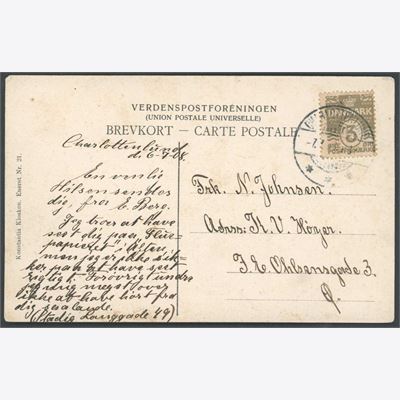 VERDENSPOSTFORENINGEN
(UNION POSTALE UNIVERSELLE)
BREVKORT – CARTE POSTALE
DANMARK
3
Charlottenlund
d. 6-7-08.
En venlig
Hilsen sendes
dig, fra E. Berg.
Jeg tror at have
set dig paa
men jeg er ikke sik-
ker paa at have set
rigtigt. Forøvrigt undres
jeg mig meget over
ikke at have hørt fra
dig
(Stadig Langgade 49)
Frk. N. Johnsen.
Adrss: H. V. Høyer.
J. E. Ohlsensgade 3.
Ø.
Konstantin Kiosken. Eneret Nr. 21.